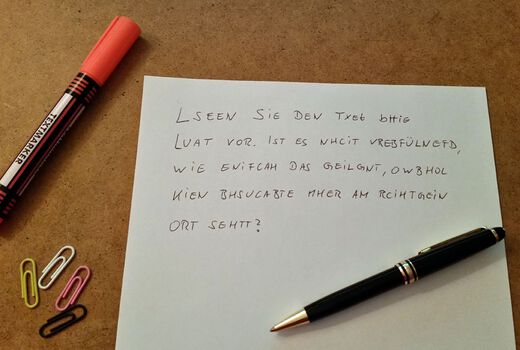 TEXTMARKER
LSEEN SIE DEN TXET bttig
LUAT VOR. IST ES NHCIT VREBFÜLNEFD,
WIE ENIFCAH DAS GEILGNT, OWBHOL
KIEN BHSUCABTE MHER AM RCIHTGEIN
ORT SEHTT?